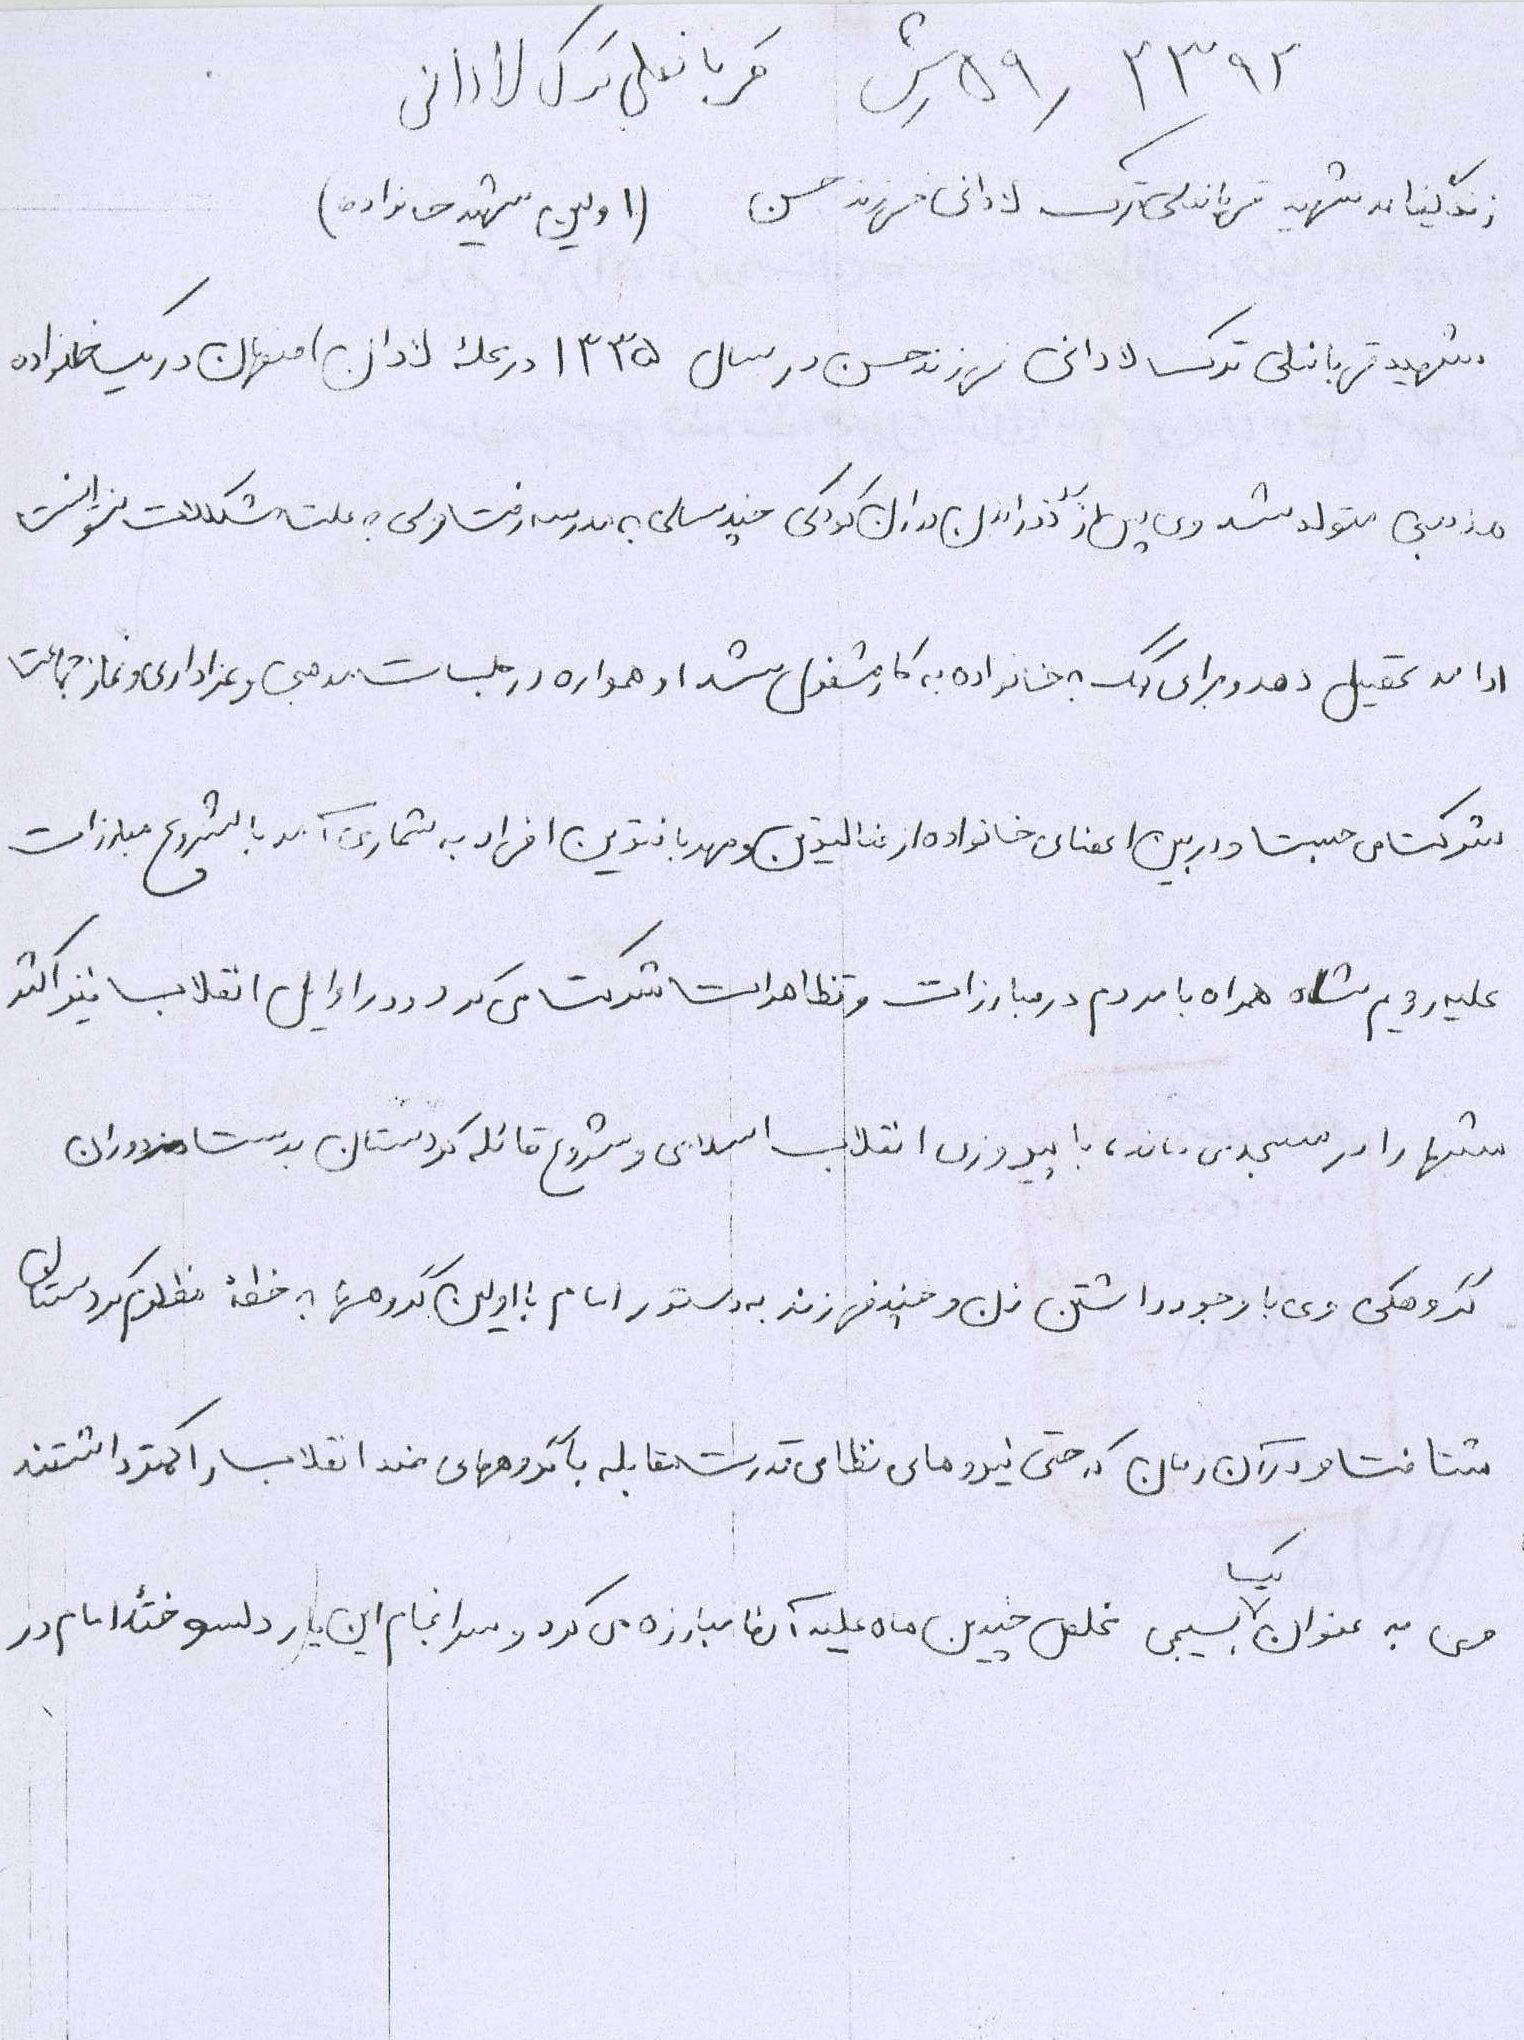 ۲۳۹۲ / ۵۹ ش قربانعلی ترک لادانی
زندگینامه شهید قربانعلی ترک لادانی فرزند حسن (اولین شهید خانواده)
شهید قربانعلی ترک لادانی فرزند حسن در سال ۱۳۳۵ در محلهٔ لادان اصفهان در یک خانواده
مذهبی متولد شد وی پس از گذراندن دوران کودکی چند سالی به مدرسه رفت ولی به علت مشکلات نتوانست
ادامه تحصیل دهد و برای کمک به خانواده به کار مشغول شد او همواره در جلسات مذهبی و عزاداری و نماز جماعت
شرکت می جست و در بین اعضای خانواده از فعالترین و مهربانترین افراد به شماری آمد با شروع مبارزات
علیه رژیم شاه همراه با مردم در مبارزات و تظاهرات شرکت می کرد و در اوایل انقلاب نیز اکثر
شبها را در مسجد می ماند، با پیروزی انقلاب اسلامی و شروع قائله کردستان بدست مزدوران
گروهکی وی با وجود داشتن زن و چند فرزند به دستور امام با اولین گروهها به خطهٔ مظلوم کردستان
شتافت و در آن زمان که حتی نیروهای نظامی قدرت مقابله با گروههای ضد انقلاب را کمتر داشتند
وی به عنوان یک بسیجی مخلص چندین ماه علیه آنها مبارزه می کرد و سرانجام این یار دلسوختهٔ امام در